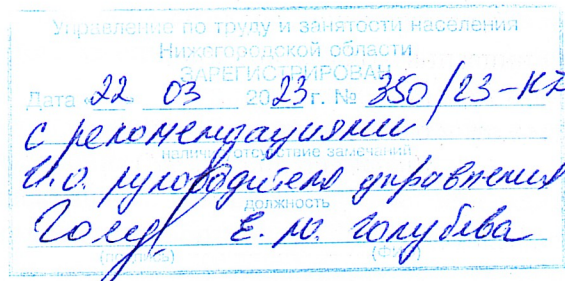 Управление по труду и занятости населения
Нижегородской области
ЗАРЕГИСТРИРОВАН
Дата 22 03 2023 г. № 350/23-КД
с рекомендациями
наличие/отсутствие замечаний
И.о. руководителя управления
должность
Голуб Е.Ю. Голубева
(подпись) (ФИО)